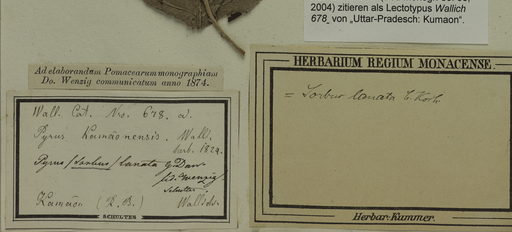 2004) zitieren als Lectotypus Wallich
678, von „Uttar-Pradesch: Kumaon“.
Ad elaborandam Pomacearum monographiam
Do. Wenzig communicatum anno 1874.
Wall. Cat. Nro. 678. a.
Pyrus Kamaonensis. Wall.
herb. 1829.
Pyrus (Sorbus) lanata Don
fid. Wenzig
Kamaon (R. B.) Wallich.
SCHULTES
HERBARIUM REGIUM MONACENSE.
= Sorbus lanata C. Koch
Herbar. Kummer.